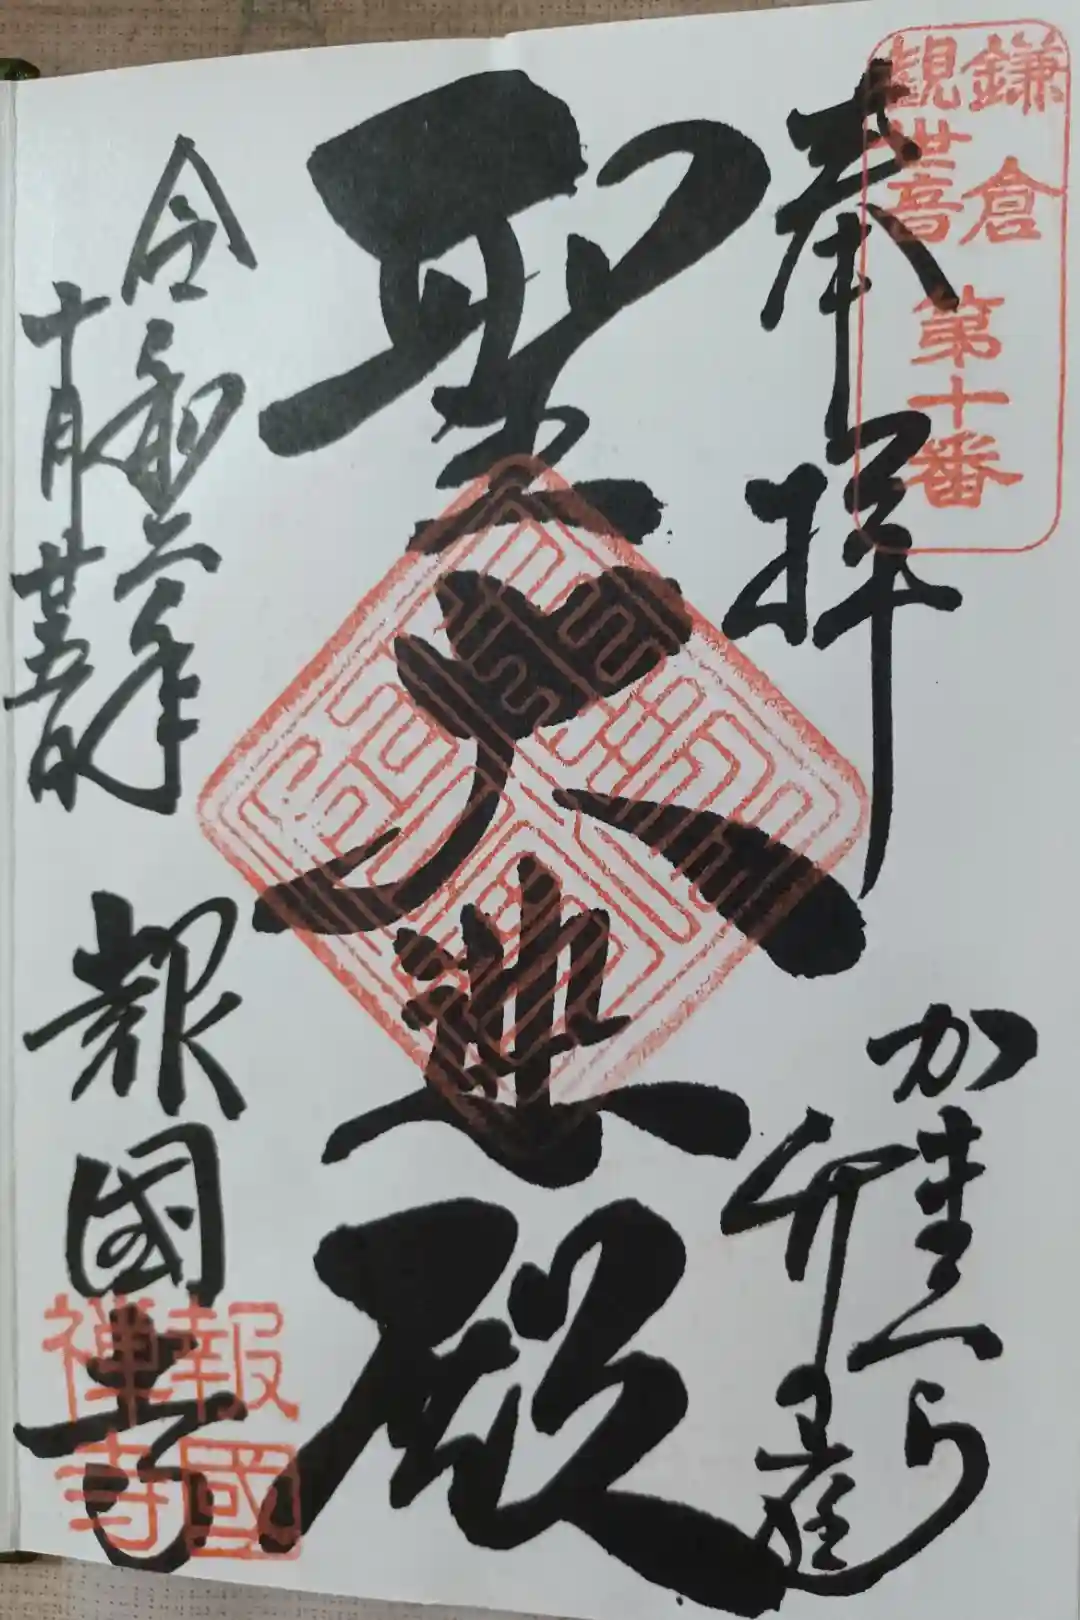 鎌倉
観世音
第十番
奉拝
かまくら
竹の庭
聖大悲殿
令和六年
十月廿五日
報國寺
報國
禅寺